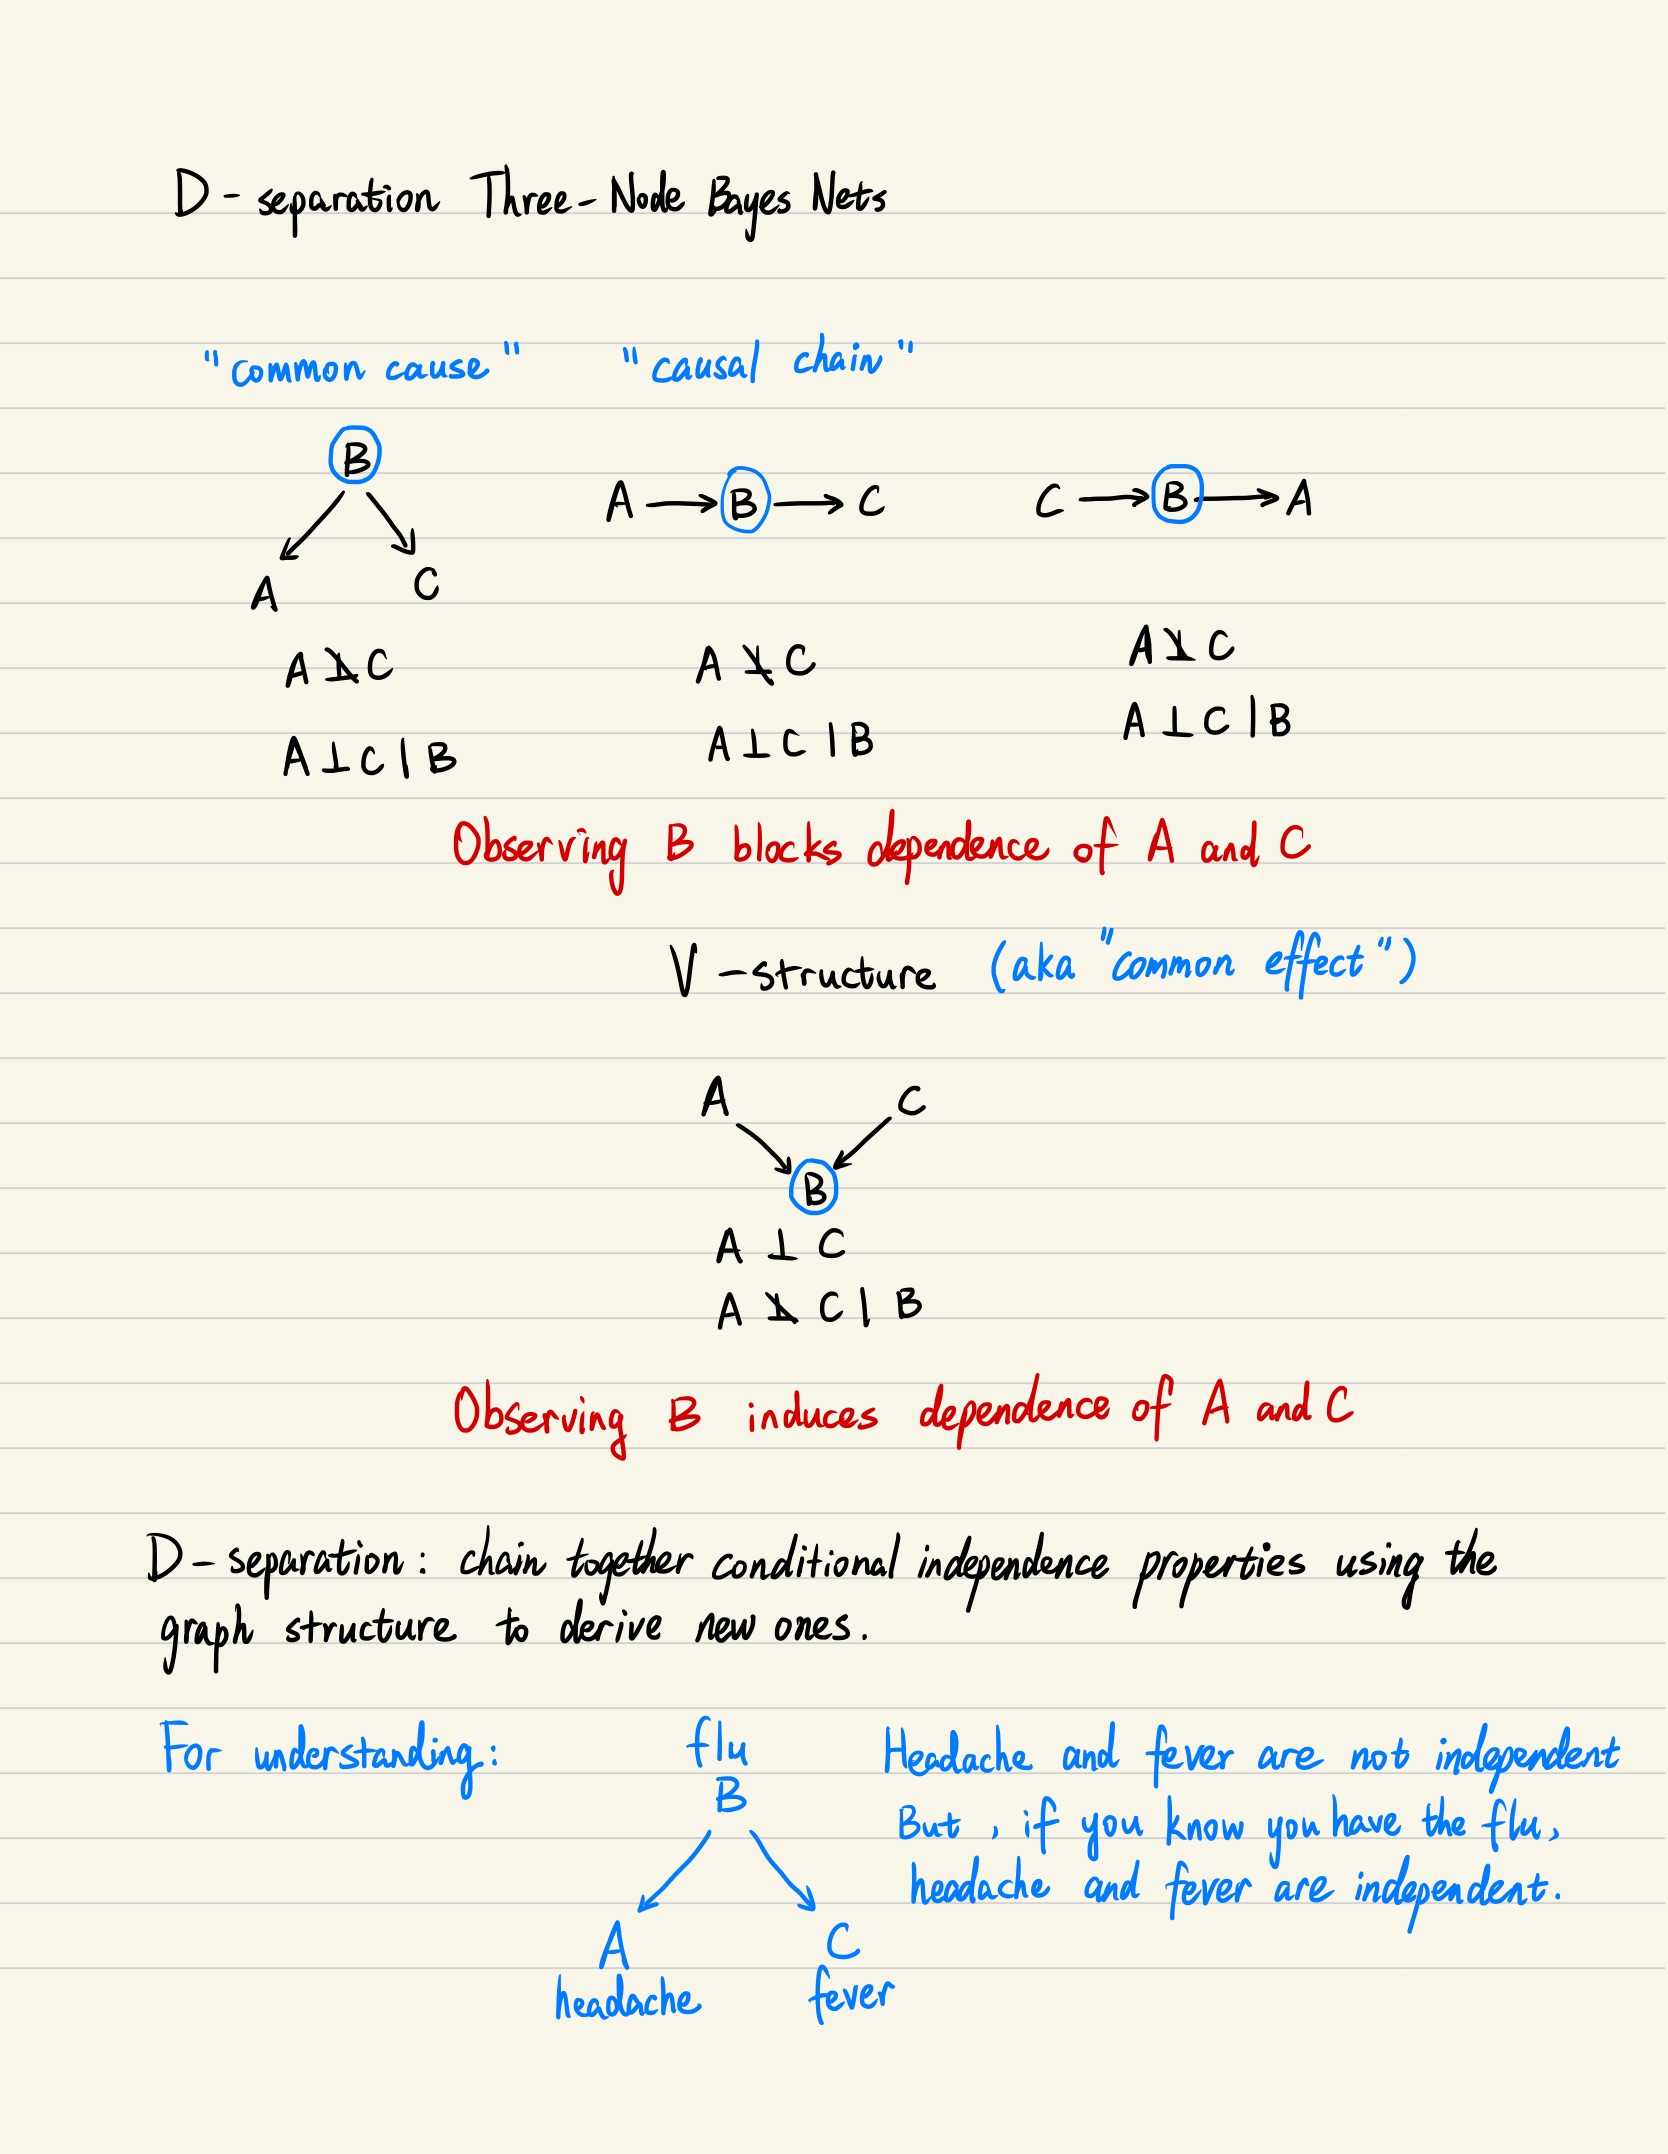 D - separation Three-Node Bayes Nets
"common cause" "causal chain"
B
A → B → C
C → B → A
A C
A ⊥̸ C
A ⊥̸ C
A ⊥̸ C
A ⊥ C | B
A ⊥ C | B
A ⊥ C | B
Observing B blocks dependence of A and C
V-structure (aka "common effect")
A C
B
A ⊥ C
A ⊥̸ C | B
Observing B induces dependence of A and C
D - separation: chain together conditional independence properties using the
graph structure to derive new ones.
For understanding:
flu
B
A C
headache fever
Headache and fever are not independent
But, if you know you have the flu,
headache and fever are independent.